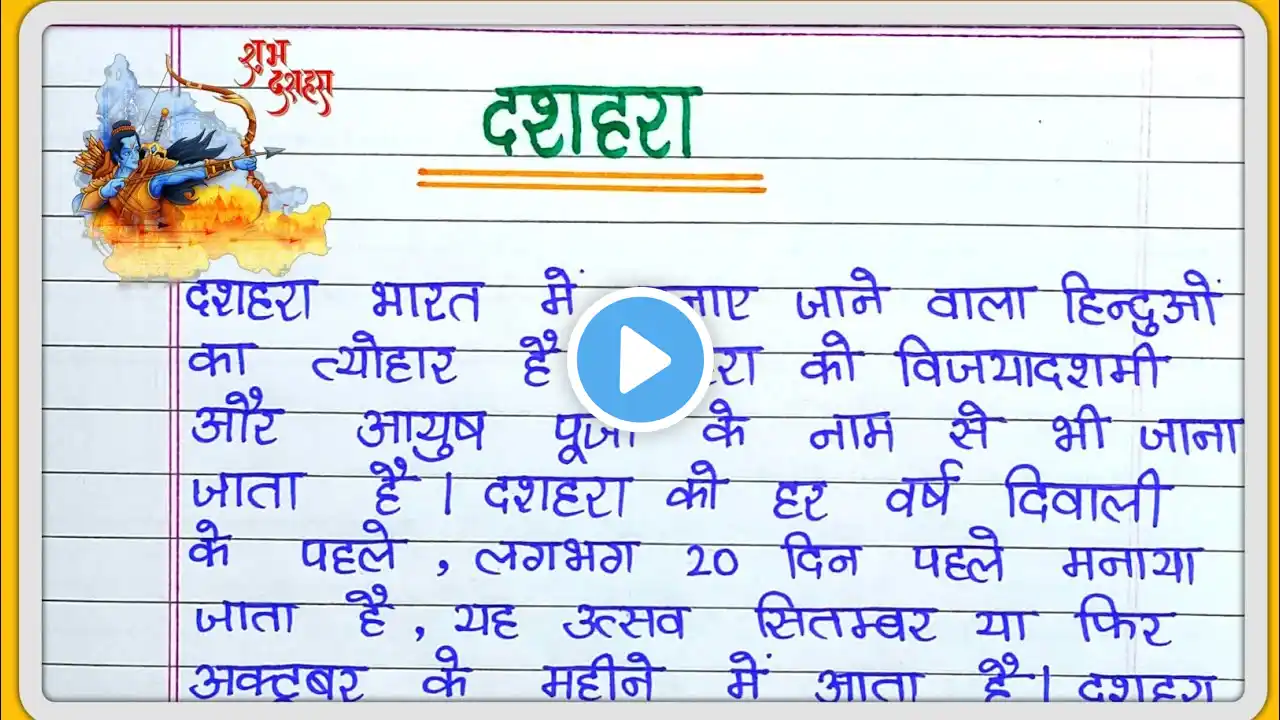 शुभ
दशहरा
दशहरा
दशहरा भारत में जाने वाला हिन्दुओं
का त्योहार है को विजयादशमी
और आयुष पूजा के नाम से भी जाना
जाता है । दशहरा को हर वर्ष दिवाली
के पहले , लगभग 20 दिन पहले मनाया
जाता है , यह उत्सव सितम्बर या फिर
अक्टूबर के महीने में आता है । दशहरा